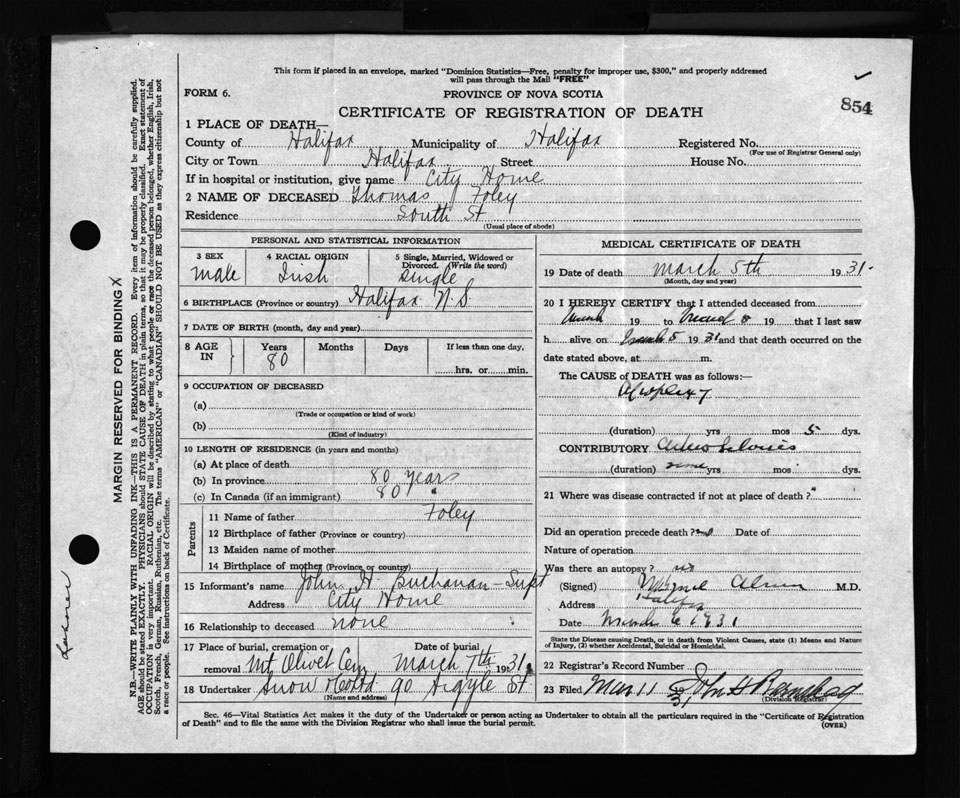 This form if placed in an envelope, marked "Dominion Statistics—Free, penalty for improper use, $300," and properly addressed
will pass through the Mail "FREE"
854
FORM 6.
PROVINCE OF NOVA SCOTIA
CERTIFICATE OF REGISTRATION OF DEATH
1 PLACE OF DEATH—
County of Halifax Municipality of Halifax Registered No.
(For use of Registrar General only)
City or Town Halifax Street House No.
If in hospital or institution, give name City Home
2 NAME OF DECEASED Thomas Foley
Residence South St
(Usual place of abode)
PERSONAL AND STATISTICAL INFORMATION
3 SEX 4 RACIAL ORIGIN 5 Single, Married, Widowed or
Divorced. (Write the word)
male Irish Single
6 BIRTHPLACE (Province or country) Halifax N.S.
7 DATE OF BIRTH (month, day and year)
8 AGE IN Years Months Days If less than one day,
80 hrs. or min.
9 OCCUPATION OF DECEASED
(a)
(Trade or occupation or kind of work)
(b)
(Kind of industry)
10 LENGTH OF RESIDENCE (in years and months)
(a) At place of death
(b) In province 80 years
(c) In Canada (if an immigrant) 80 "
Parents
11 Name of father Foley
12 Birthplace of father (Province or country)
13 Maiden name of mother
14 Birthplace of mother (Province or country)
15 Informant's name John H. Buchanan - Supt
Address City Home
16 Relationship to deceased none
17 Place of burial, cremation or Date of burial
removal Mt Olivet Cem March 7th 1931
18 Undertaker Snow & Co Ltd 90 Argyle St
(Name and address)
MEDICAL CERTIFICATE OF DEATH
19 Date of death March 5th 1931-
(Month, day and year)
20 I HEREBY CERTIFY that I attended deceased from
19 to 19 that I last saw
h alive on March 5 1931 and that death occurred on the
date stated above, at m.
The CAUSE of DEATH was as follows:—
Apoplexy
(duration) yrs mos 5 dys.
CONTRIBUTORY
(duration) yrs mos dys.
21 Where was disease contracted if not at place of death?
Did an operation precede death? no Date of
Nature of operation
Was there an autopsy? no
(Signed) M.D.
Address Halifax
Date March 6 1931
State the Disease causing Death, or in death from Violent Causes, state (1) Means and Nature
of Injury, (2) whether Accidental, Suicidal or Homicidal.
22 Registrar's Record Number
23 Filed Mar 11 31 John H
(Division Registrar)
Sec. 46—Vital Statistics Act makes it the duty of the Undertaker or person acting as Undertaker to obtain all the particulars required in the "Certificate of Registration
of Death" and to file the same with the Division Registrar who shall issue the burial permit.
(OVER)
MARGIN RESERVED FOR BINDING X
N.B.—WRITE PLAINLY WITH UNFADING INK—THIS IS A PERMANENT RECORD. Every item of information should be carefully supplied.
AGE should be stated EXACTLY. PHYSICIANS should STATE CAUSE OF DEATH in plain terms, so that it may be properly classified. Exact statement of
OCCUPATION is very important. RACIAL ORIGIN will be described by stating to what people or race the deceased person belonged, whether English, Irish,
Scotch, French, German, Russian, Ruthenian, etc. The terms "AMERICAN" or "CANADIAN" SHOULD NOT BE USED as they express citizenship but not
a race or people. See instructions on back of Certificate.